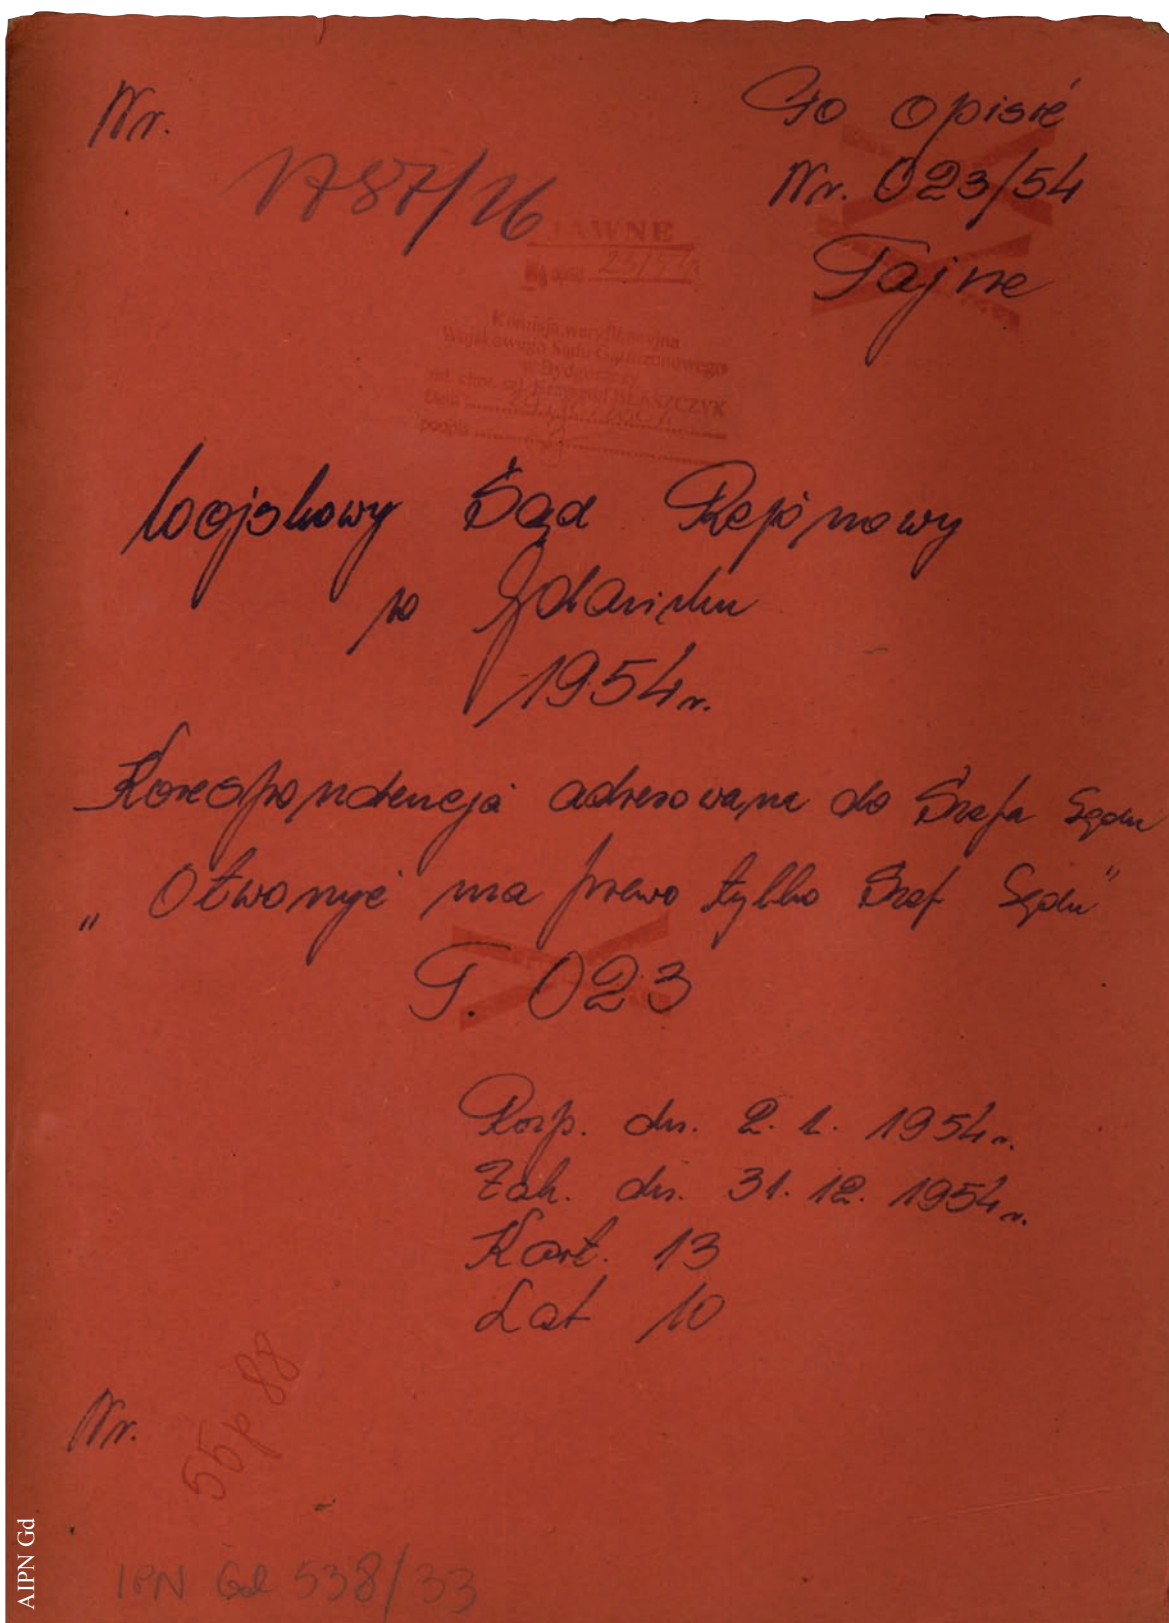 Nr.
Po opisie
Nr. 023/54
Tajne
1787/26
JAWNE
Komisja weryfikacyjna
Wojskowego Sądu Garnizonowego
w Bydgoszczy
BŁASZCZYK
Data
podpis
Wojskowy Sąd Rejonowy
w Gdańsku
1954r.
Korespondencja adresowana do Szefa Sądu
„Otworzyć ma prawo tylko Szef Sądu”
T. 023
Rozp. dn. 2. 1. 1954r.
Zak. dn. 31. 12. 1954r.
Kart. 13
Lat 10
Nr.
IPN Gd 538/33
AIPN Gd